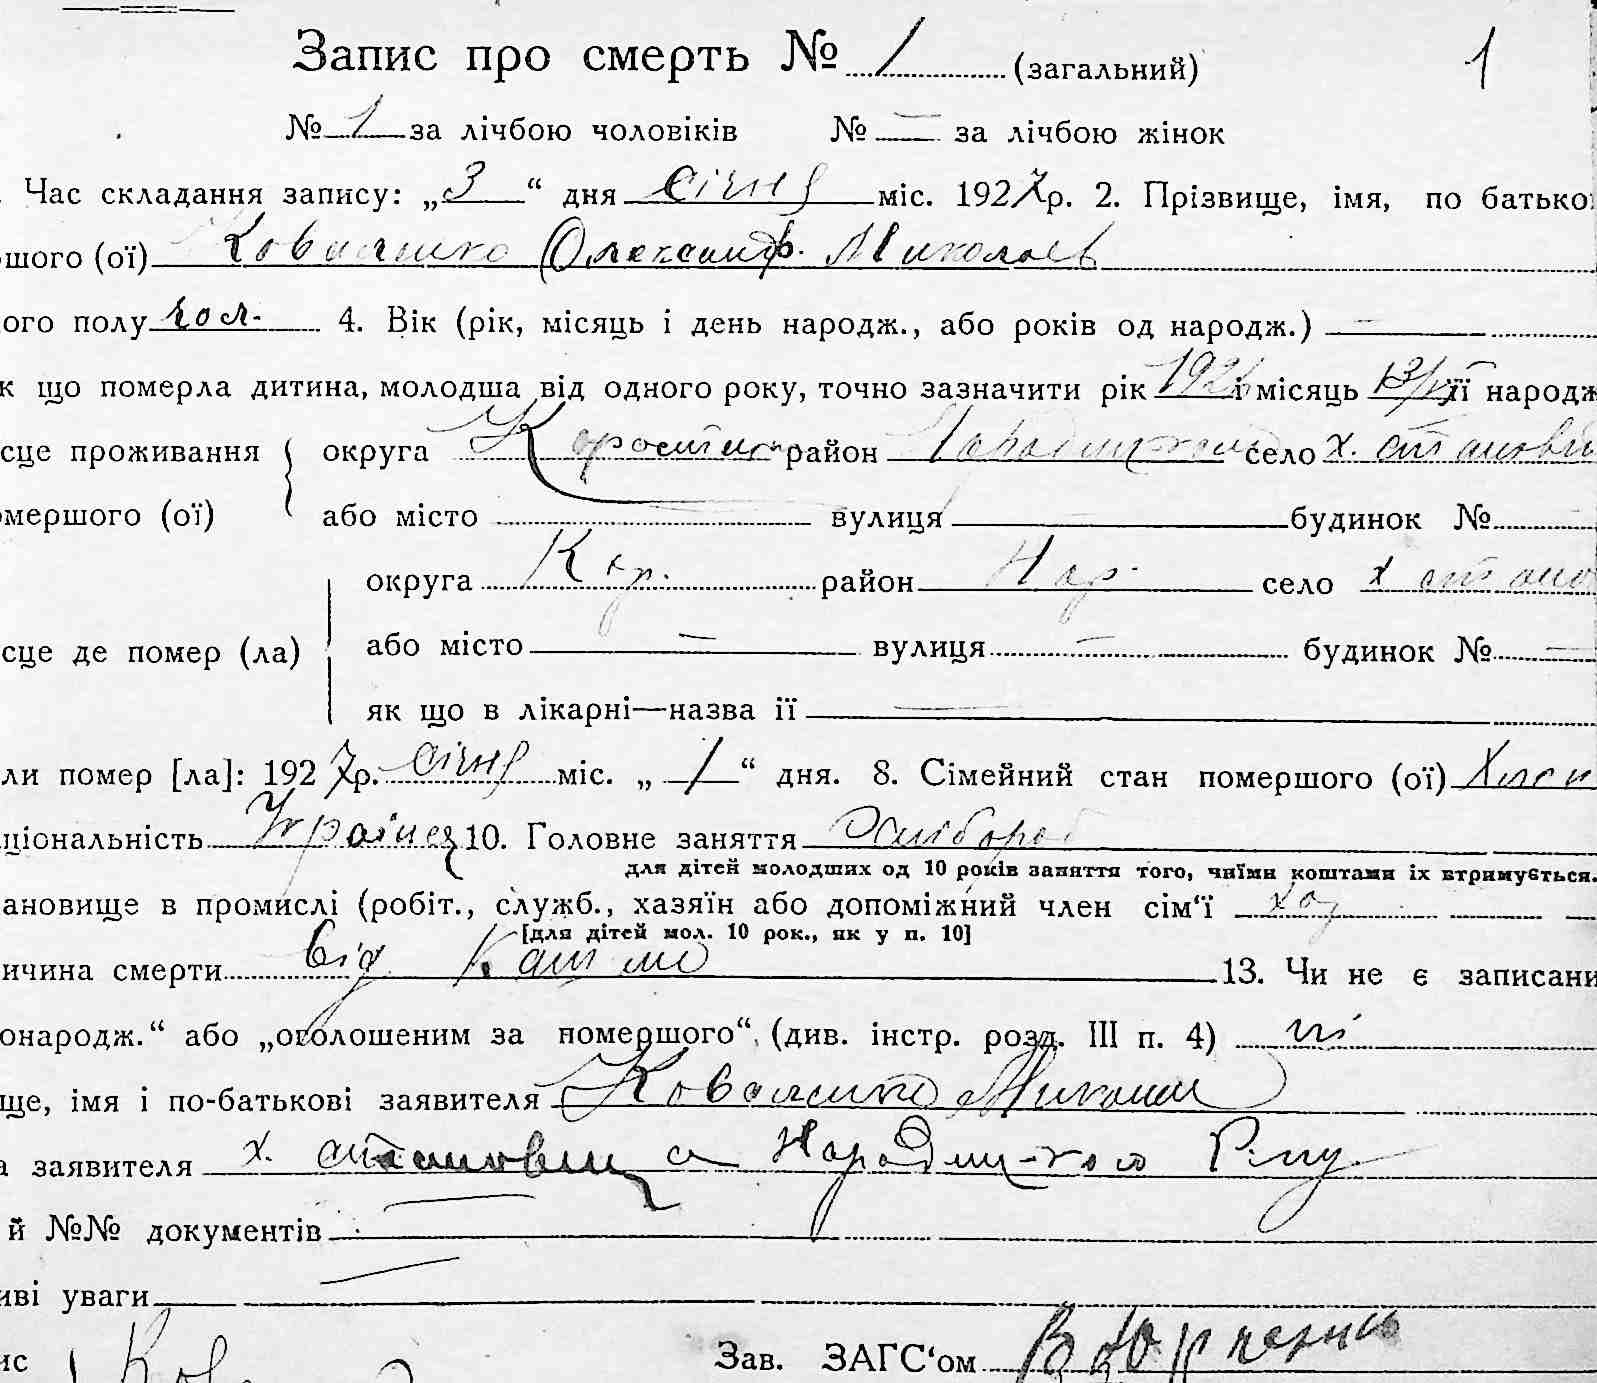 Запис про смерть № 1 (загальний) 1
№ 1 за лічбою чоловіків № — за лічбою жінок
Час складання запису: „3“ дня січня міс. 1927р. 2. Прізвище, імя, по батько
шого (ої) Коваленко Олександр. Миколаєв
ого полу чол. 4. Вік (рік, місяць і день народж., або років од народж.) —
к що померла дитина, молодша від одного року, точно зазначити рік 1926 і місяць її народж
сце проживання округа Коростен район Народицького село х. становий
омершого (ої) або місто вулиця будинок №
округа Кор. район Нар. село х стано
сце де помер (ла) або місто — вулиця — будинок № —
як що в лікарні—назва її —
ли помер [ла]: 1927р. січня міс. „1“ дня. 8. Сімейний стан помершого (ої)
ціональність Украінец 10. Головне заняття Хлібороб
для дітей молодших од 10 років заняття того, чиїми коштами їх втримується.
ановище в промислі (робіт., служб., хазяїн або допоміжний член сім‘ї хаз
[для дітей мол. 10 рок., як у п. 10]
ичина смерти від Кашлю 13. Чи не є записани
онародж.“ або „оголошеним за помершого“ (див. інстр. розд. III п. 4) ні
ще, імя і по-батькові заявителя Коваленко Микола
а заявителя х. становища Народицького Р-ну
й №№ документів —
иві уваги
ис Зав. ЗАГС‘ом